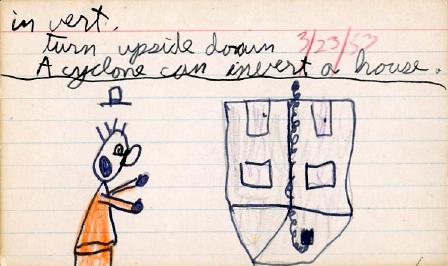 in vert.
turn upside down 3/23/53
A cyclone can invert a house.